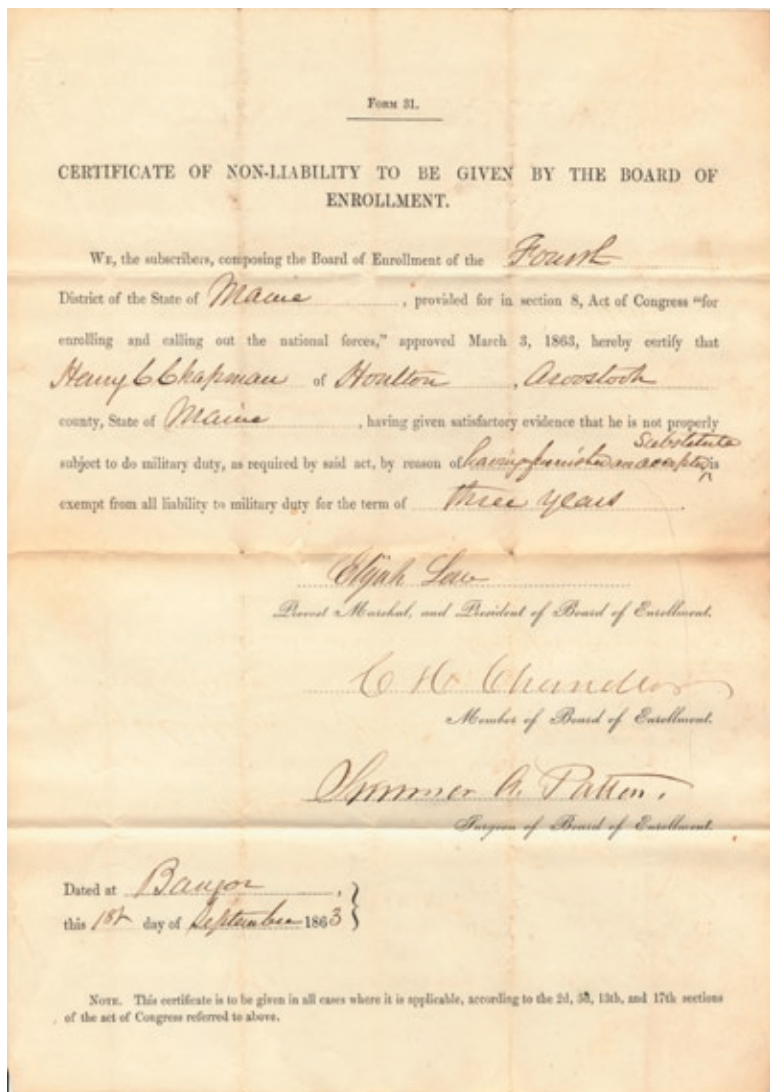 FORM 31.
CERTIFICATE OF NON-LIABILITY TO BE GIVEN BY THE BOARD OF
ENROLLMENT.
WE, the subscribers, composing the Board of Enrollment of the Fourth
District of the State of Maine, provided for in section 8, Act of Congress "for
enrolling and calling out the national forces," approved March 3, 1863, hereby certify that
Henry C Chapman of Houlton, Aroostook
county, State of Maine, having given satisfactory evidence that he is not properly
Substitute
subject to do military duty, as required by said act, by reason of having furnished an accepted is
exempt from all liability to military duty for the term of three years.
Elijah Low
Provost Marshal, and President of Board of Enrollment.
C H Chandler
Member of Board of Enrollment.
Sumner A. Patten.
Surgeon of Board of Enrollment.
Dated at Bangor,
this 1st day of September 1863
NOTE. This certificate is to be given in all cases where it is applicable, according to the 2d, 3d, 13th, and 17th sections
of the act of Congress referred to above.